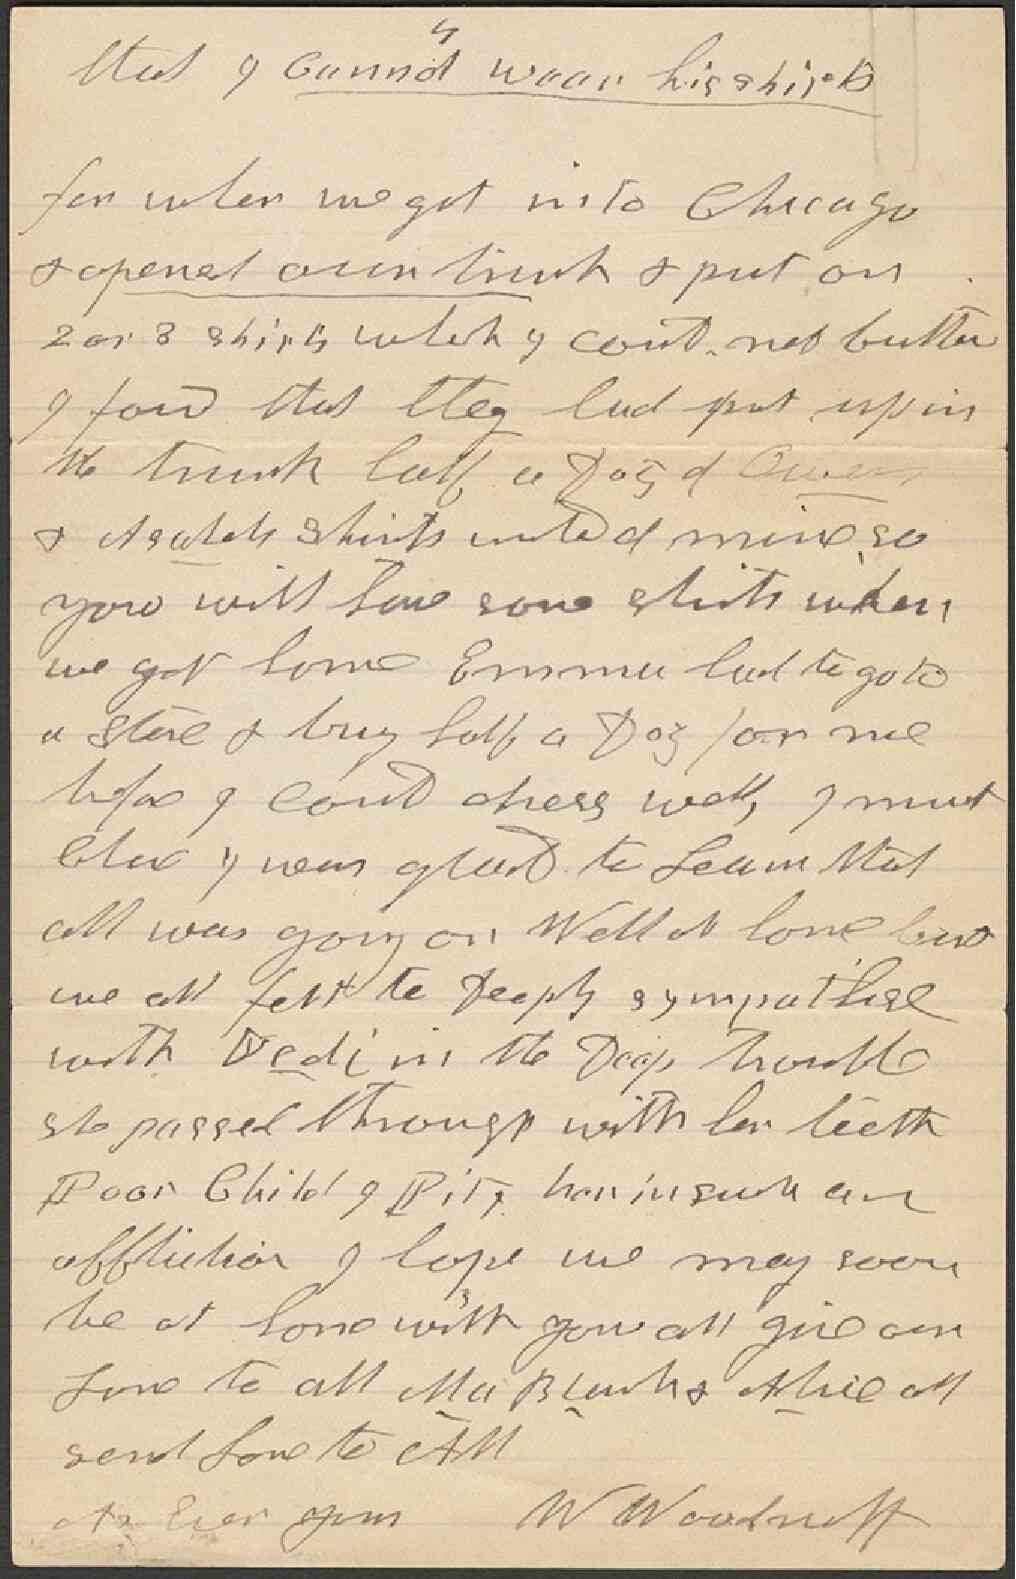 4
that I cannot wear his shirts
for when we got into Chicago
& opened our trunk & put on
2 or 3 shirts which I could not button
I found that they had put up in
the trunk half a Doz of Owens
& Asahels shirts insted of mine so
you will have some shirts when
we get home Emma had to go to
a store & buy half a Doz for me
before I could dress well, I must
Close I was glad to learn that
all was going on Well at home but
we all felt to Deeply sympathise
with Dedi in the Deep trouble
she passed through with her teeth
Poor Child I Pity her in such an
affliction I hope we may soon
be at home with you all give our
Love to all Ma Blanch & Alice all
send Love to All
As Ever yours W Woodruff